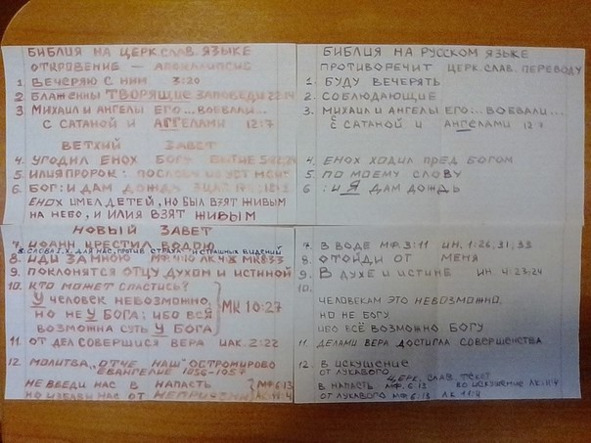 БИБЛИЯ НА ЦЕРК. СЛАВ. ЯЗЫКЕ
ОТКРОВЕНИЕ – АПОКАЛИПСИС
1 ВЕЧЕРЯЮ С НИМ 3:20
2 БЛАЖЕННЫ ТВОРЯЩИЕ ЗАПОВЕДИ 22:14
3 МИХАИЛ И АНГЕЛЫ ЕГО... ВОЕВАЛИ...
С САТАНОЙ И АГГЕЛАМИ 12:7
ВЕТХИЙ ЗАВЕТ
4. УГОДИЛ ЕНОХ БОГУ БЫТИЕ
5. ИЛИЯ ПРОРОК:
6. БОГ: И ДАМ ДОЖДЬ
ЕНОХ ИМЕЛ ДЕТЕЙ, НО БЫЛ ВЗЯТ ЖИВЫМ
НА НЕБО, И ИЛИЯ ВЗЯТ ЖИВЫМ
НОВЫЙ ЗАВЕТ
7. ИОАНН КРЕСТИЛ ВОДОЮ
8. ИДИ ЗА МНОЮ МФ 4:10 ЛК 4:8 МК 8:33
9. ПОКЛОНЯТСЯ ОТЦУ ДУХОМ И ИСТИНОЙ
10. КТО МОЖЕТ СПАСТИСЬ?
У ЧЕЛОВЕК НЕВОЗМОЖНО,
НО НЕ У БОГА: ИБО ВСЯ
ВОЗМОЖНА СУТЬ У БОГА
МК 10:27
11 ОТ ДЕЛ СОВЕРШИСЯ ВЕРА ИАК. 2:22
12 МОЛИТВА „ОТЧЕ НАШ" ОСТРОМИРОВО
ЕВАНГЕЛИЕ 1056-1057
НЕ ВВЕДИ НАС В НАПАСТЬ
НО ИЗБАВИ НАС ОТ НЕПРИЯЗНИ
МФ 6:13
БИБЛИЯ НА РУССКОМ ЯЗЫКЕ
ПРОТИВОРЕЧИТ ЦЕРК. СЛАВ. ПЕРЕВОДУ
1. БУДУ ВЕЧЕРЯТЬ
2. СОБЛЮДАЮЩИЕ
3. МИХАИЛ И АНГЕЛЫ ЕГО... ВОЕВАЛИ...
С САТАНОЙ И АНГЕЛАМИ 12:7
4. ЕНОХ ХОДИЛ ПРЕД БОГОМ
5. ПО МОЕМУ СЛОВУ
6 : И Я ДАМ ДОЖДЬ
7. В ВОДЕ МФ. 3:11 ИН. 1:26, 31, 33
8. ОТОЙДИ ОТ МЕНЯ
9. В ДУХЕ И ИСТИНЕ ИН. 4:23, 24
10.
ЧЕЛОВЕКАМ ЭТО НЕВОЗМОЖНО,
НО НЕ БОГУ
ИБО ВСЁ ВОЗМОЖНО БОГУ
11 ДЕЛАМИ ВЕРА ДОСТИГЛА СОВЕРШЕНСТВА
12. В ИСКУШЕНИЕ
ОТ ЛУКАВОГО
ЦЕРК. СЛАВ. ТЕКСТ
В НАПАСТЬ МФ. 6:13 ВО ИСКУШЕНИЕ ЛК 11:4
ОТ ЛУКАВОГО МФ. 6:13 ЛК 11:4